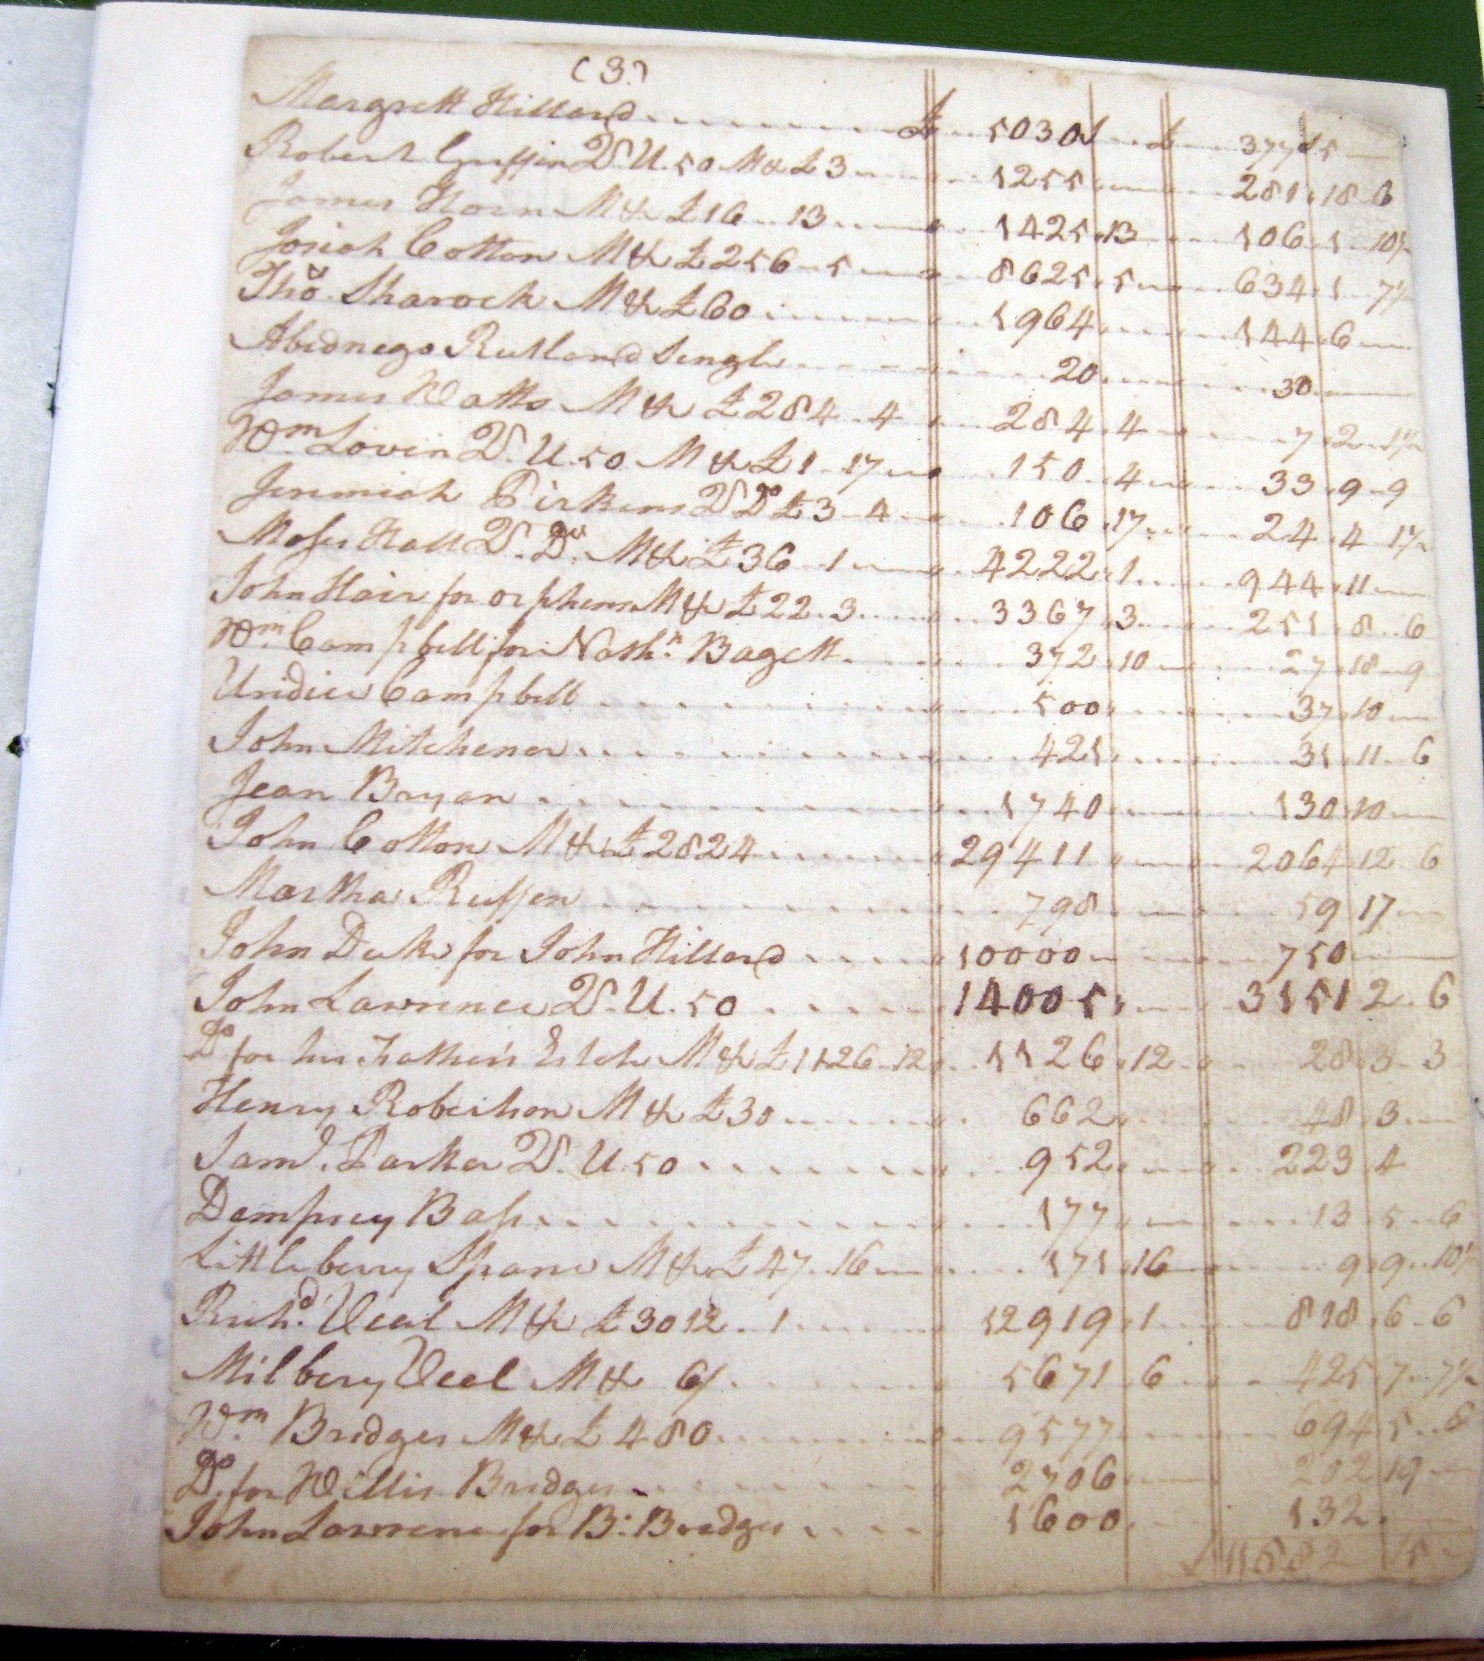 (3)
Margrett Hilland £ 5030 £ 377 5
Robert Griffin D. U. 50 M&c £3 1255 281 18 6
James Horn M&c £16 13 1425 13 106 1 10½
Josiah Cotton M&c £256 5 8625 5 634 1 7½
Tho.s Sharock M&c £60 1964 144 6
Abednego Rutland Single 20 30
James Watts M&c £284 4 284 4 7 2 1½
Wm. Lovin D. U. 50 M&c £1 17 150 4 33 9 9
Jeremiah Pirkins D Do £3 4 106 17 24 4 1½
Moses Hall D. Do. M&c £36 1 4222 1 944 11
John Hair for orphens M&c £22 3 3367 3 251 8 6
Wm. Campbell for Nath.n Bagett 372 10 27 18 9
Uridice Campbell 500 37 10
John Mitchener 421 31 11 6
Jean Bryan 1740 130 10
John Cotton M&c £2824 29411 2064 12 6
Martha Ruffen 798 59 17
John Duke for John Hilland 10000 750
John Lawrence D. U. 50 14005 3151 2 6
Do for his Father's Estate M&c £1126 12 1126 12 28 3 3
Henry Robertson M&c £30 662 48 3
Saml. Parker D. U. 50 952 223 4
Dempsey Bass 177 13 5 6
Littlebery Spann M&c £47 16 171 16 9 9 10½
Richd. Veal M&c £3012 1 12919 1 818 6 6
Milbery Veel M&c 6/ 5671 6 425 7 7½
Wm Bridges M&c £480 9577 694 5 6
Do. for Willis Bridges 2706 202 19
John Lawrence for B: Bredges 1600 132
£11582 15